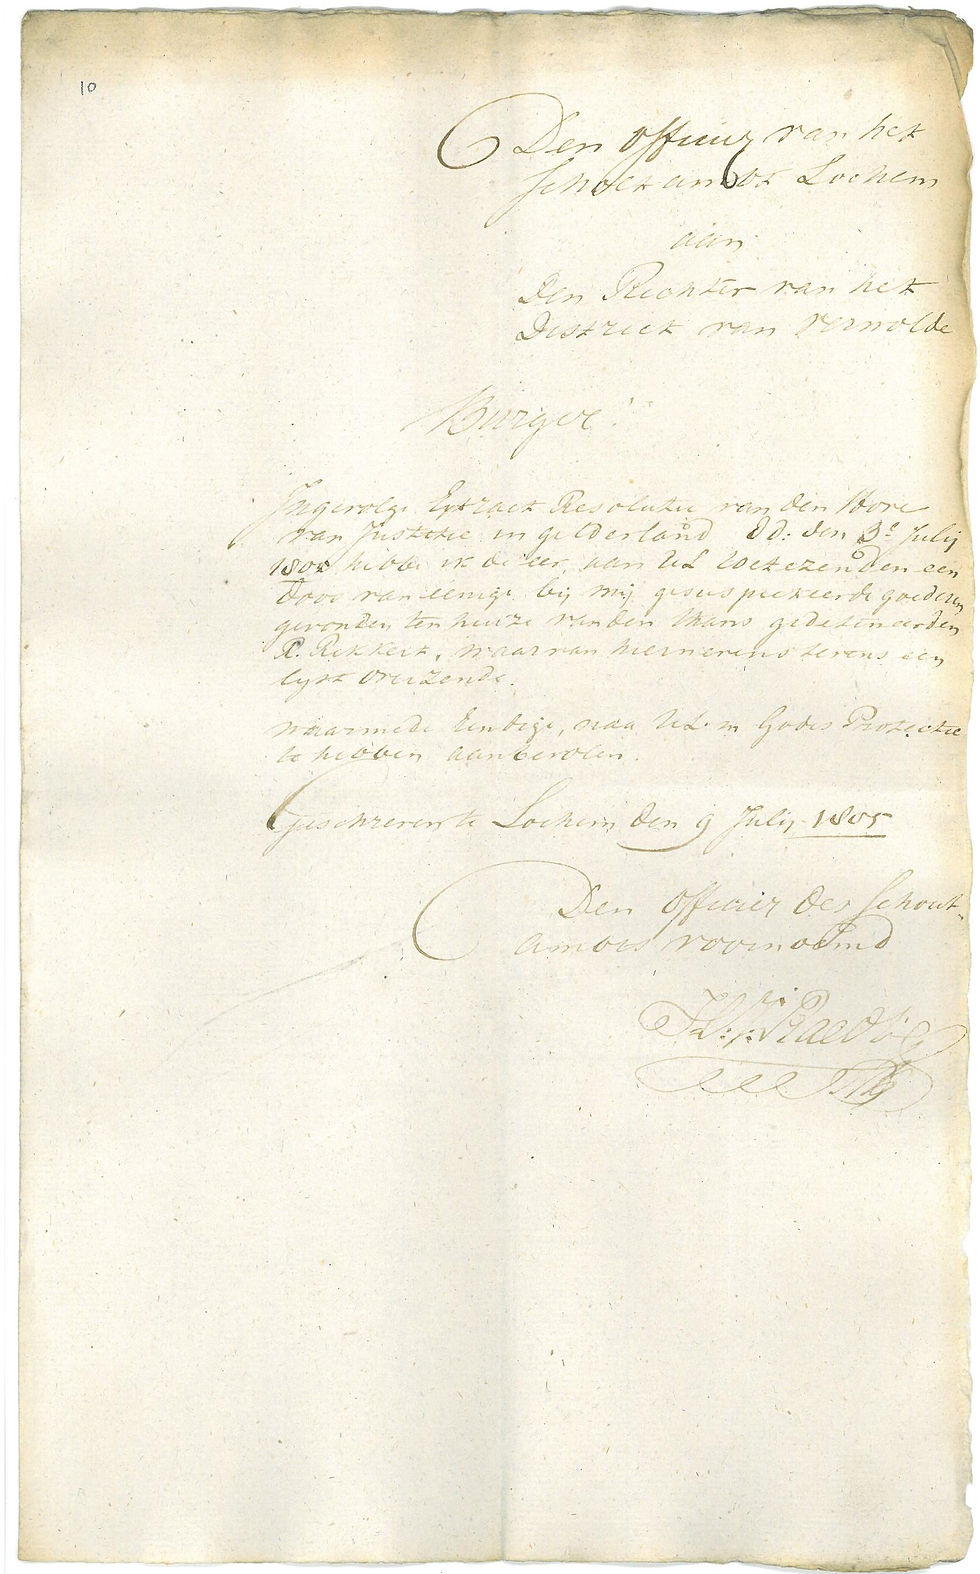 10
Den Officier van het
Scholtambt Lochem
aan
Den Richter van het
District van Vernolde
Burger!
Ingevolge Extract Resolutie van den Hove
van Justitie in Gelderland dd: den 3e Julij
1805 hebbe ik de eer, aan UL toetezenden een
doos van eenige bij mij gesuspecteerde goederen
gevonden ten huize van den thans gedetineerden
R. Rekkert, waarvan hiernevens tevens een
lijst overzende.
Waarmede Eindige, naa UL in Godes Protectie
te hebben aanbevolen.
Geschreven te Lochem den 9 Julij 1805
Den Officier des Schout-
ambts voornoemd